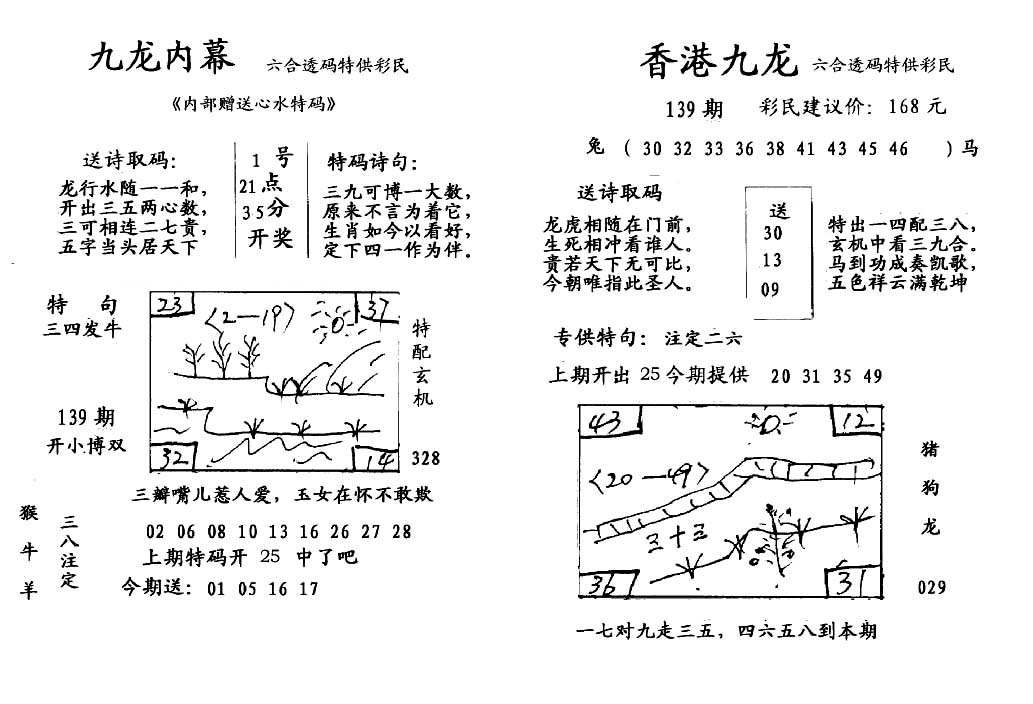 九龙内幕 六合透码特供彩民
《内部赠送心水特码》
送诗取码：
龙行水随一一和，
开出三五两心数，
三可相连二七贵，
五字当头居天下
1 号
21点
35分
开奖
特码诗句：
三九可博一大数，
原来不言为着它，
生肖如今以看好，
定下四一作为伴。
特 句
三四发牛
139期
开小博双
23
37
〈2—19〉
32
14
特配玄机
328
三瓣嘴儿惹人爱，玉女在怀不敢欺
猴牛羊
三八注定
02 06 08 10 13 16 26 27 28
上期特码开 25 中了吧
今期送：01 05 16 17
香港九龙 六合透码特供彩民
139期 彩民建议价：168元
兔 （30 32 33 36 38 41 43 45 46 ）马
送诗取码
龙虎相随在门前，
生死相冲看谁人。
贵若天下无可比，
今朝唯指此圣人。
送
30
13
09
特出一四配三八，
玄机中看三九合。
马到功成奏凯歌，
五色祥云满乾坤
专供特句：注定二六
上期开出 25 今期提供 20 31 35 49
43
12
〈20—49〉
三十三
36
31
猪狗龙
029
一七对九走三五，四六五八到本期